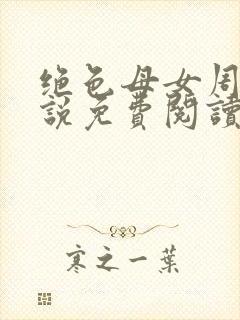 绝色母女周
說免費閱讀
寒之一葉